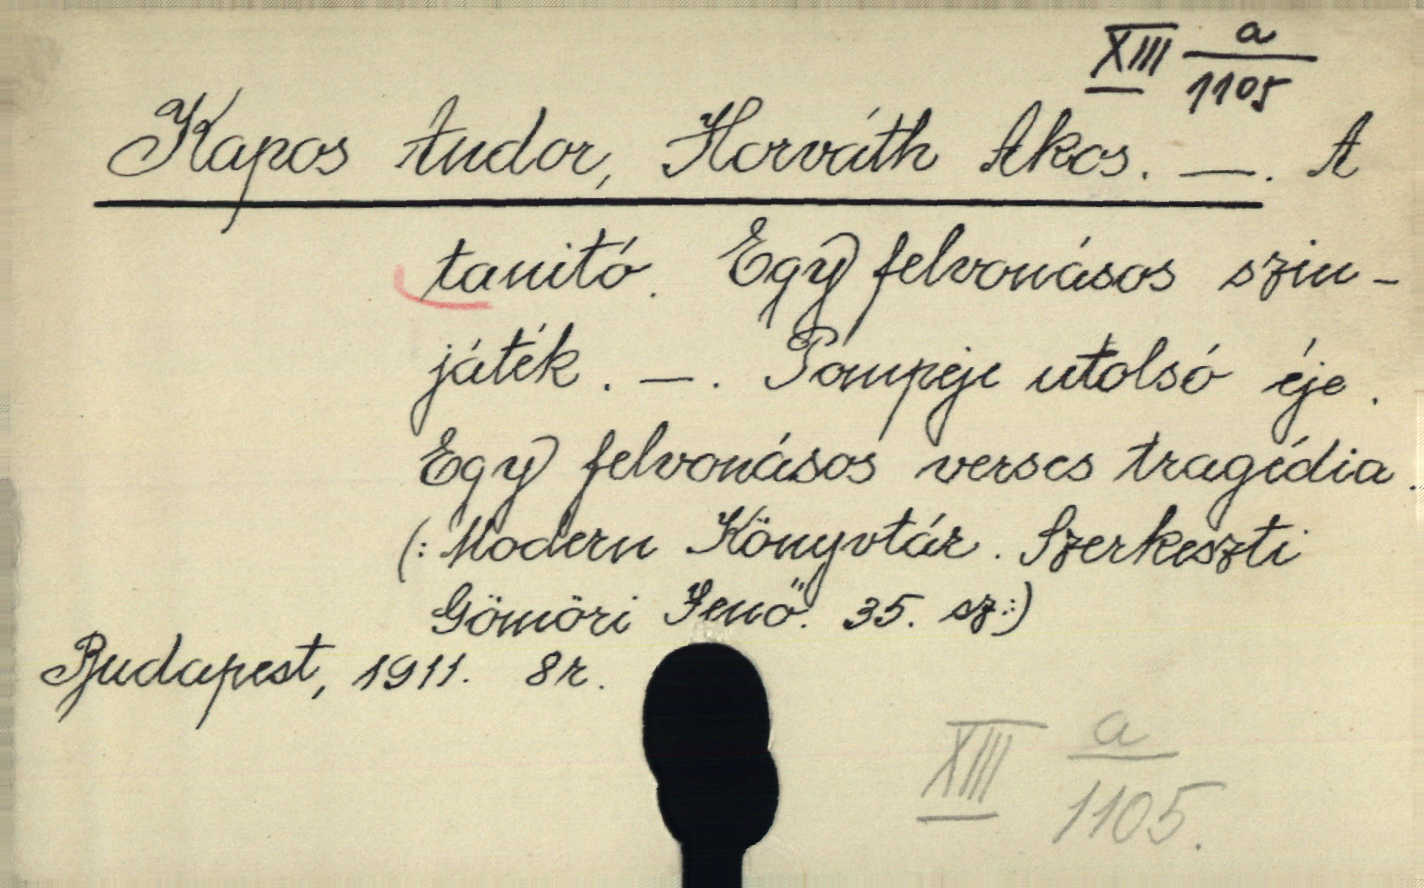 XIII a/1105
Kapos Andor, Horváth Akos. —. A
tanitó. Egy felvonásos szin-
játék. —. Pompeji utolsó éje.
Egy felvonásos verses tragédia.
(: Modern Könyvtár. Szerkeszti
Gömöri Jenő. 35. sz:)
Budapest, 1911. 8r.
XIII a/1105.